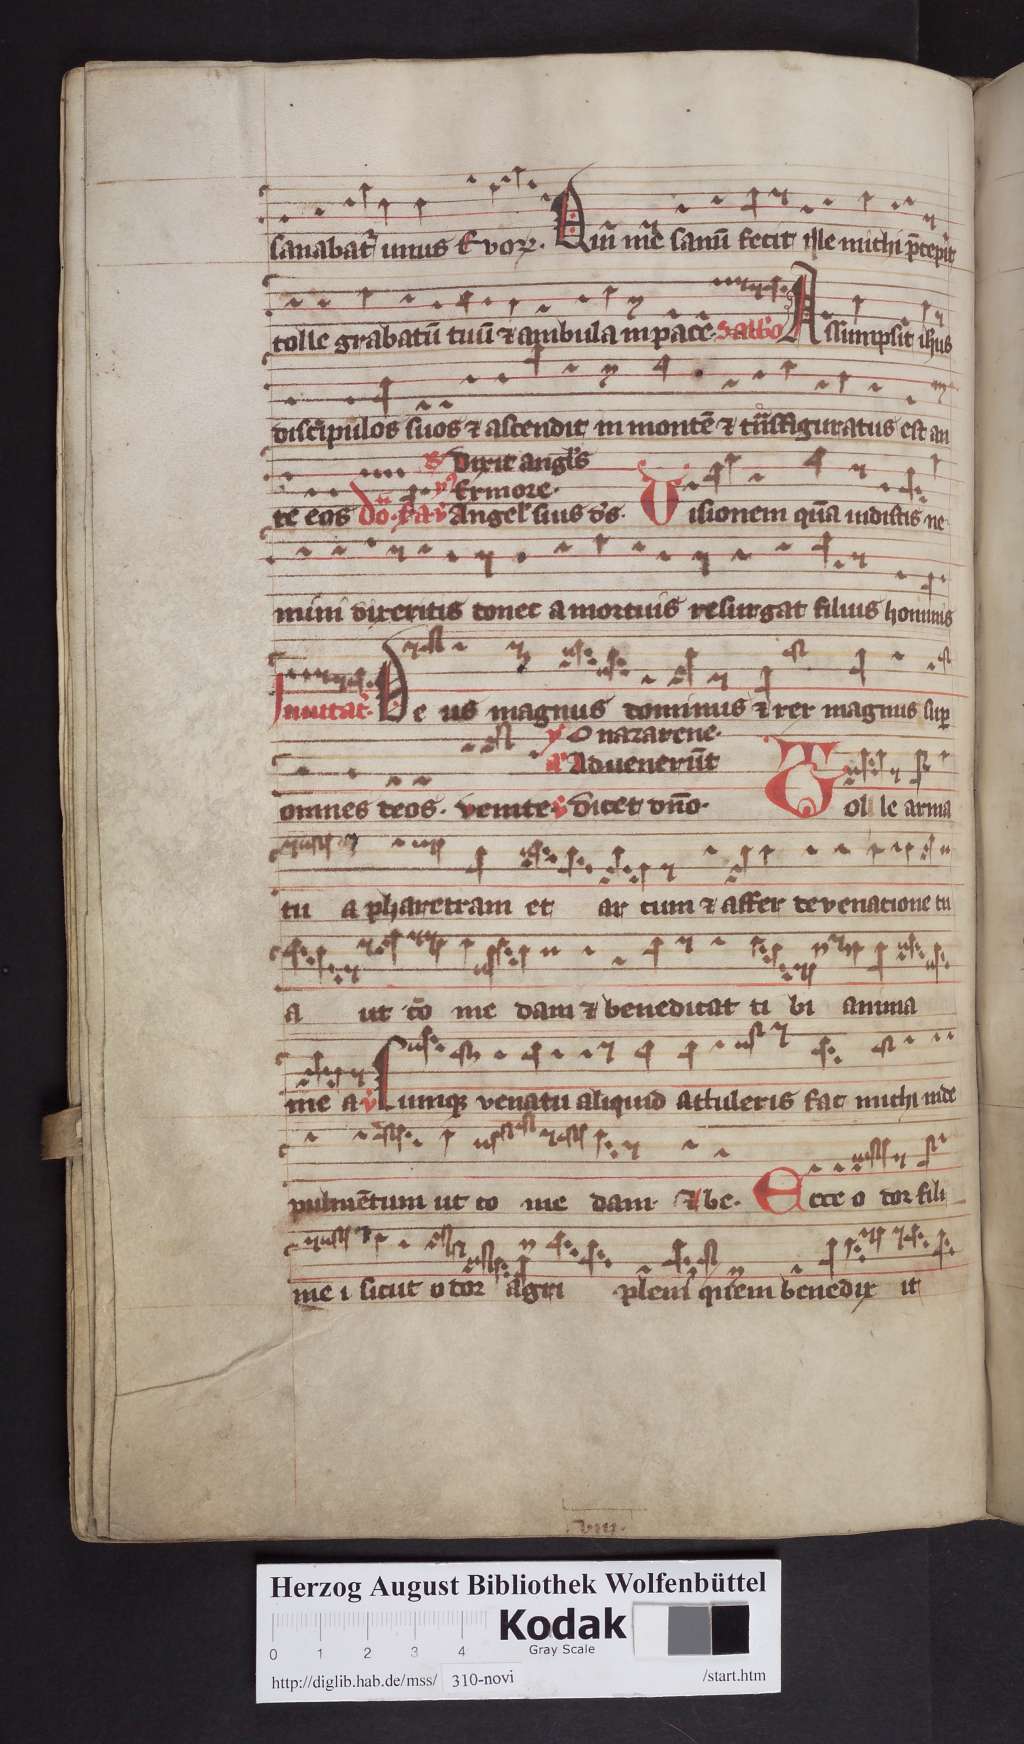 sanabatᷣ unus Evoꝝ. Qui me sanū fecit ille michi p̄cepit
tolle grabatū tuū ⁊ ambula in pace. Sabbo Assumpsit ihus
discipulos suos ⁊ ascendit in monte ⁊ trāsfiguratus est an
℟ dixit angls
℣ Ex more.
te eos Do. Angel suis ds. Visionem quā uidistis ne
mini dixeritis donec a mortuis resurgat filius hominis
Inuitat. De us magnus dominus ⁊ rex magnus sup
O nazarene.
Aduenerūt
omnes deos. venite ℣ dicet dno. Tol le arma
tu a pharetram et ar cum ⁊ affer de venatione tu
a ut co me dam ⁊ benedicat ti bi anima
me a ℣ Cumqꝫ venatu aliquid attuleris fac michi inde
pulmētum ut co me dam. ⁊ be. Ecce o dor fili
me i sicut o dor agri pleni quem benedix it
viii.
Herzog August Bibliothek Wolfenbüttel
0 1 2 3 4
Kodak
Gray Scale
http://diglib.hab.de/mss/ 310-novi /start.htm